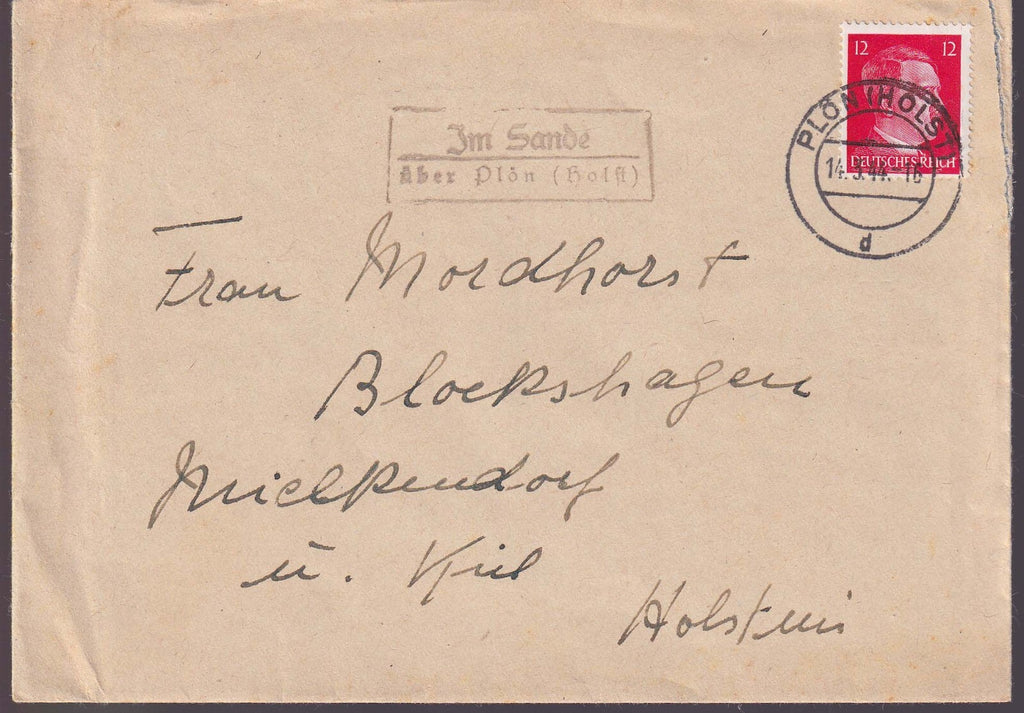 12 12
DEUTSCHES REICH
PLÖN (HOLST)
14.3.44.-16
d
Im Sande
über Plön (Holst)
Frau Mordhorst
Blockshagen
Mielkendorf
ü. Kiel
Holstein